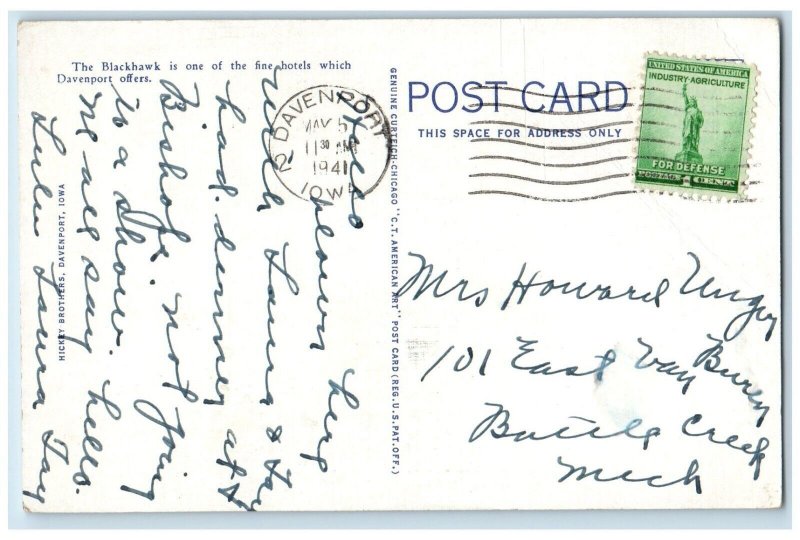 The Blackhawk is one of the fine hotels which
Davenport offers.
POST CARD
THIS SPACE FOR ADDRESS ONLY
UNITED STATES OF AMERICA
INDUSTRY·AGRICULTURE
FOR DEFENSE
POSTAGE 1 CENT
DAVENPORT
2
MAY 5
11 30 AM
1941
IOWA
GENUINE CURTEICH-CHICAGO "C.T. AMERICAN ART" POST CARD (REG. U.S. PAT. OFF.)
HICKEY BROTHERS, DAVENPORT, IOWA
Hello
down here
with Laura & Fay
had dinner at
Bishops. not going
to a show.
we all say hello.
Lulu Laura Fay
Mrs Howard Unger
101 East Van Buren
Battle Creek
Mich